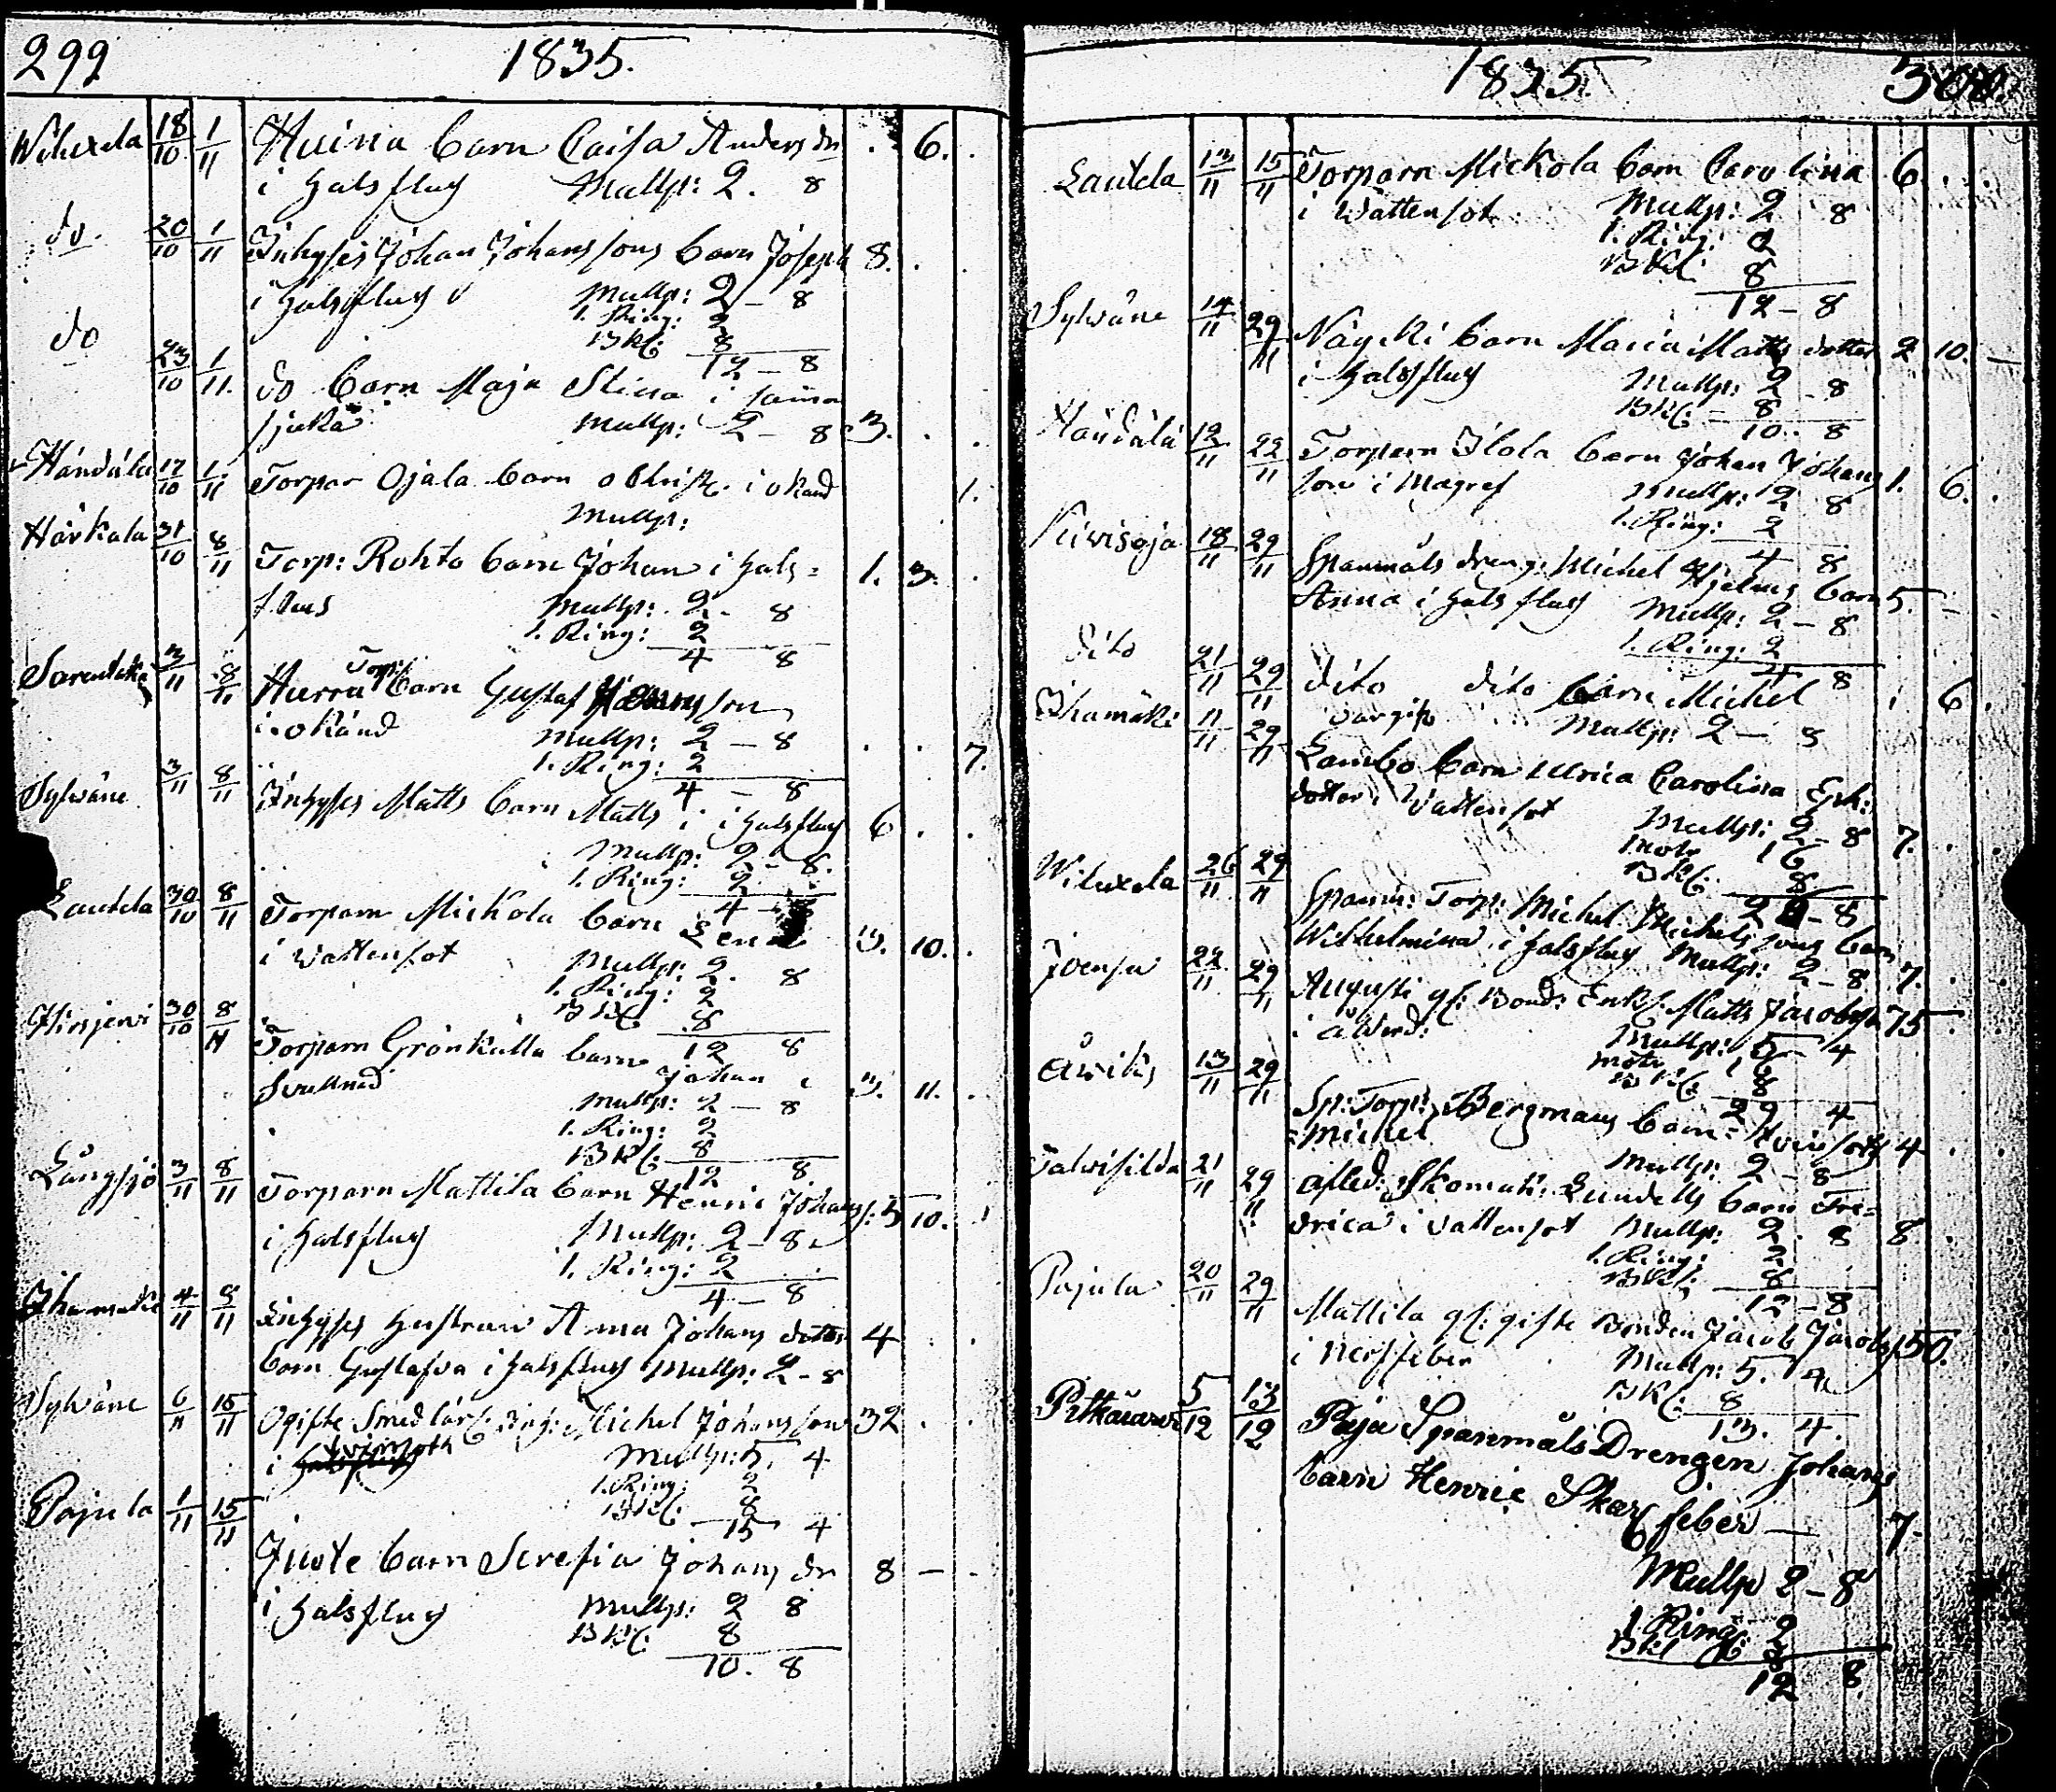 299 1835.
Wiluxela 18/10 1/11 Huina barn Caisa Anders dr . 6. .
i halsflus Mullp: 2. 8
do. 20/10 1/11 Inhyses Johan Johanssons barn Joseph 8. .
i halsflus Mullp: 2 - 8
1. Ring: 2
BKl: 8
12 - 8
do 23/10 1/11. do barn Maja Stina i samma
sjuka Mullp: 2 - 8 3. . .
Handala 17/10 1/11 Torpar Ojala barn o Christ. i okänd 1.
Mullp:
Härkala 31/10 8/11 Torp: Rohto barn Johan i hals= 1. 3. .
flus Mullp: 2 - 8
1. Ring: 2
4 8
3/11 8/11 Hurru Torp: barn Gustaf son
i okänd Mullp: 2 - 8 . . 7.
1. Ring: 2
4 - 8
Sylwäne 3/11 8/11 Inhyses Matts barn Matts i halsflus 6 . .
Mullp: 2 - 8.
1. Ring: 2
4 - 8
Lautela 30/10 8/11 Torparn Mickola barn Lena 3. 10. .
i vattensot Mullp: 2. 8
1. Ring: 2
BKl: 8
12 8
Hirsjervi 30/10 8/11 Torparn Grönkulla barn Johan i
svullnad 3. 11. .
Mullp: 2 - 8
1. Ring: 2
BKl: 8
12 8
Långsjö 3/11 8/11 Torparn Mattila barn Henric Johans s: 3 10. .
i halsflus Mullp: 2 - 8
1. Ring: 2
4 - 8
Ihamäki 4/11 8/11 Inhyses hustrun Anna Johans dotters 4 . .
barn Gustafva i halsflus Mullp: 2 - 8
Sylwäne 6/11 15/11 Ogifte Smedlärl: Michel Johansson 32 . .
i halsflus Mullp: 5. 4
1. Ring: 2
BKl: 8
15 4
Pajula 1/11 15/11
Juote barn Serefia Johans dr 8 - .
i halsflus Mullp: 2 8
BKl: 8
10. 8
1835. 300.
Lautela 13/11 15/11 Torparn Mickola barn Carolina 6. . .
i Wattensot Mullp: 2 8
1. Ring: 2
BKl: 8
12 - 8
Sylwäne 14/11 29/11 Näycki barn Maria Matts dotter 2 10. -
i halsflus Mullp: 2 - 8
BKl: - 8
10. 8
Handala 12/11 22/11 Torparn Ilola barn Johan Johans
son i Magref 1. 6. .
Mullp: 2 8
1. Ring: 2
4 8
Kiwisoja 18/11 29/11 Spanmåls dreng: Michel Hjelms barn
Anna i halsflus Mullp: 2 - 8 5. -
1. Ring: 2
4 8
dito 21/11 29/11 dito dito barn Michel 1 6 .
Mullp: 2 - 8
Ihamäki 11/11 29/11 Lambo barn Ulrica Carolina Eph:
dotter i Wattensot Mullp: 2 - 8 7. . .
16
BKl: 8
8
Wiluxela 26/11 29/11 Spanm: Torp: Michel Michelssons barn
Wilhelmina i halsflus Mullp: 2 - 8. 7. .
Joensu 22/11 29/11 Augusti gl: Bond: Enkl: Matts Jacobss 75 .
i ålderd: Mullp: 5 - 4
16
BKl: 8
29 4
Åwiks 13/11 29/11 Sp: Torp: Bergmans barn 4 .
Michel Mullp: 2 - 8
Talwisilda 21/11 29/11 afsked: Skomak: Lundells barn Fre=
drica i vattensot Mullp: 2. 8 8 .
1. Ring: 2
BKl: 8
12 - 8
Pajula 20/11 29/11 Mattila gl: gifte Bonden Jacob Jacobss 50.
i nerffeber Mullp: 5. 4
BKl: 8
13. 4.
5/12 13/12 Paja Spanmåls Drengen Johans
barn Henric Skarl feber — 7.
Mullp 2 - 8
1 Ring: 2
BKl 8
12 8.